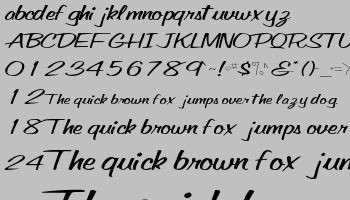 abcdefghijklmnopqrstuvwxyz
ABCDEFGHIJKLMNOPQRSTU
0123456789
12 The quick brown fox jumps over the lazy dog
18 The quick brown fox jumps over
24 The quick brown fox jum